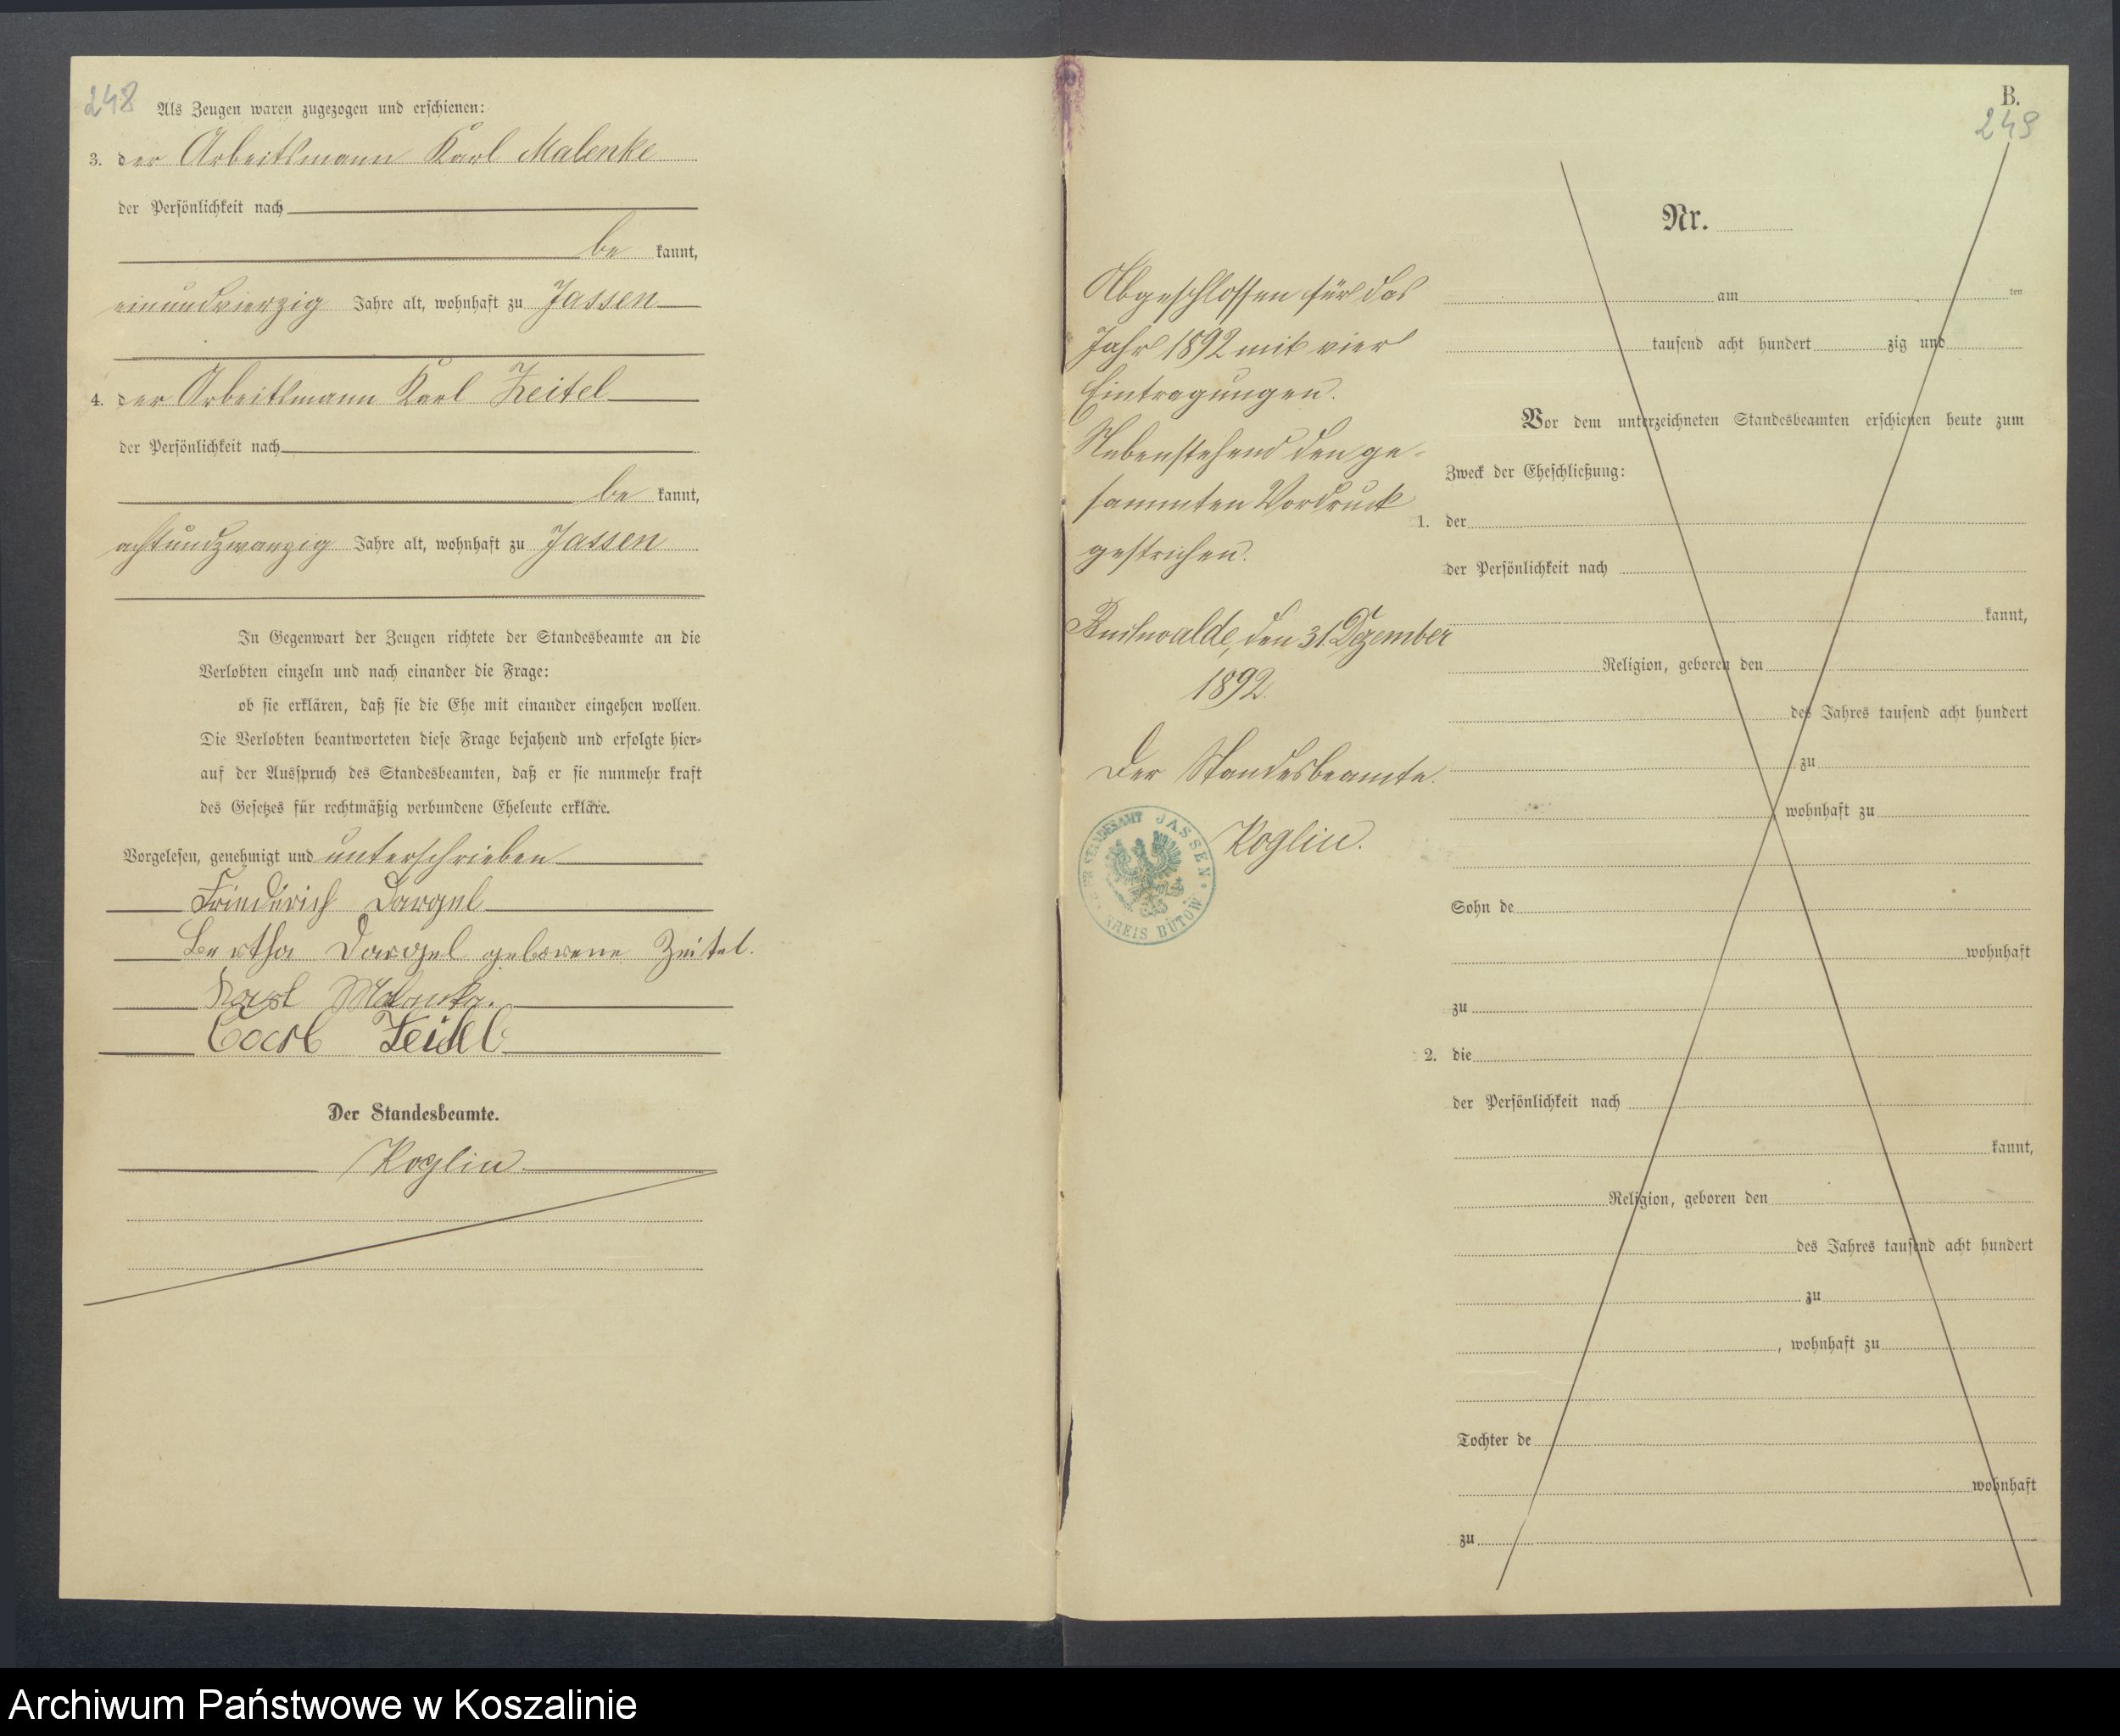 248
Als Zeugen waren zugezogen und erschienen:
3. der Arbeitsmann Karl Malenke
der Persönlichkeit nach
be kannt,
einundvierzig Jahre alt, wohnhaft zu Jassen
4. der Arbeitsmann Karl Zeitel
der Persönlichkeit nach
be kannt,
achtundzwanzig Jahre alt, wohnhaft zu Jassen
In Gegenwart der Zeugen richtete der Standesbeamte an die
Verlobten einzeln und nach einander die Frage:
ob sie erklären, daß sie die Ehe mit einander eingehen wollen.
Die Verlobten beantworteten diese Frage bejahend und erfolgte hier-
auf der Ausspruch des Standesbeamten, daß er sie nunmehr kraft
des Gesetzes für rechtmäßig verbundene Eheleute erkläre.
Vorgelesen, genehmigt und unterschrieben
Friederich Dargel
Bertha Dargel geborene Zeitel.
Karl Malenke.
Carl Zeitel
Der Standesbeamte.
Koglin.
B.
249
Abgeschlossen für das
Jahr 1892 mit vier
Eintragungen.
Nebenstehend den ge-
sammten Vordruck
gestrichen.
den 31. Dezember
1892.
Der Standesbeamte.
Koglin.
STANDESAMT JASSEN
KREIS BÜTOW
Nr.
am ten
tausend acht hundert zig und
Vor dem unterzeichneten Standesbeamten erschienen heute zum
Zweck der Eheschließung:
1. der
der Persönlichkeit nach
kannt,
Religion, geboren den
des Jahres tausend acht hundert
zu
wohnhaft zu
Sohn de
wohnhaft
zu
2. die
der Persönlichkeit nach
kannt,
Religion, geboren den
des Jahres tausend acht hundert
zu
, wohnhaft zu
Tochter de
wohnhaft
zu
Archiwum Państwowe w Koszalinie